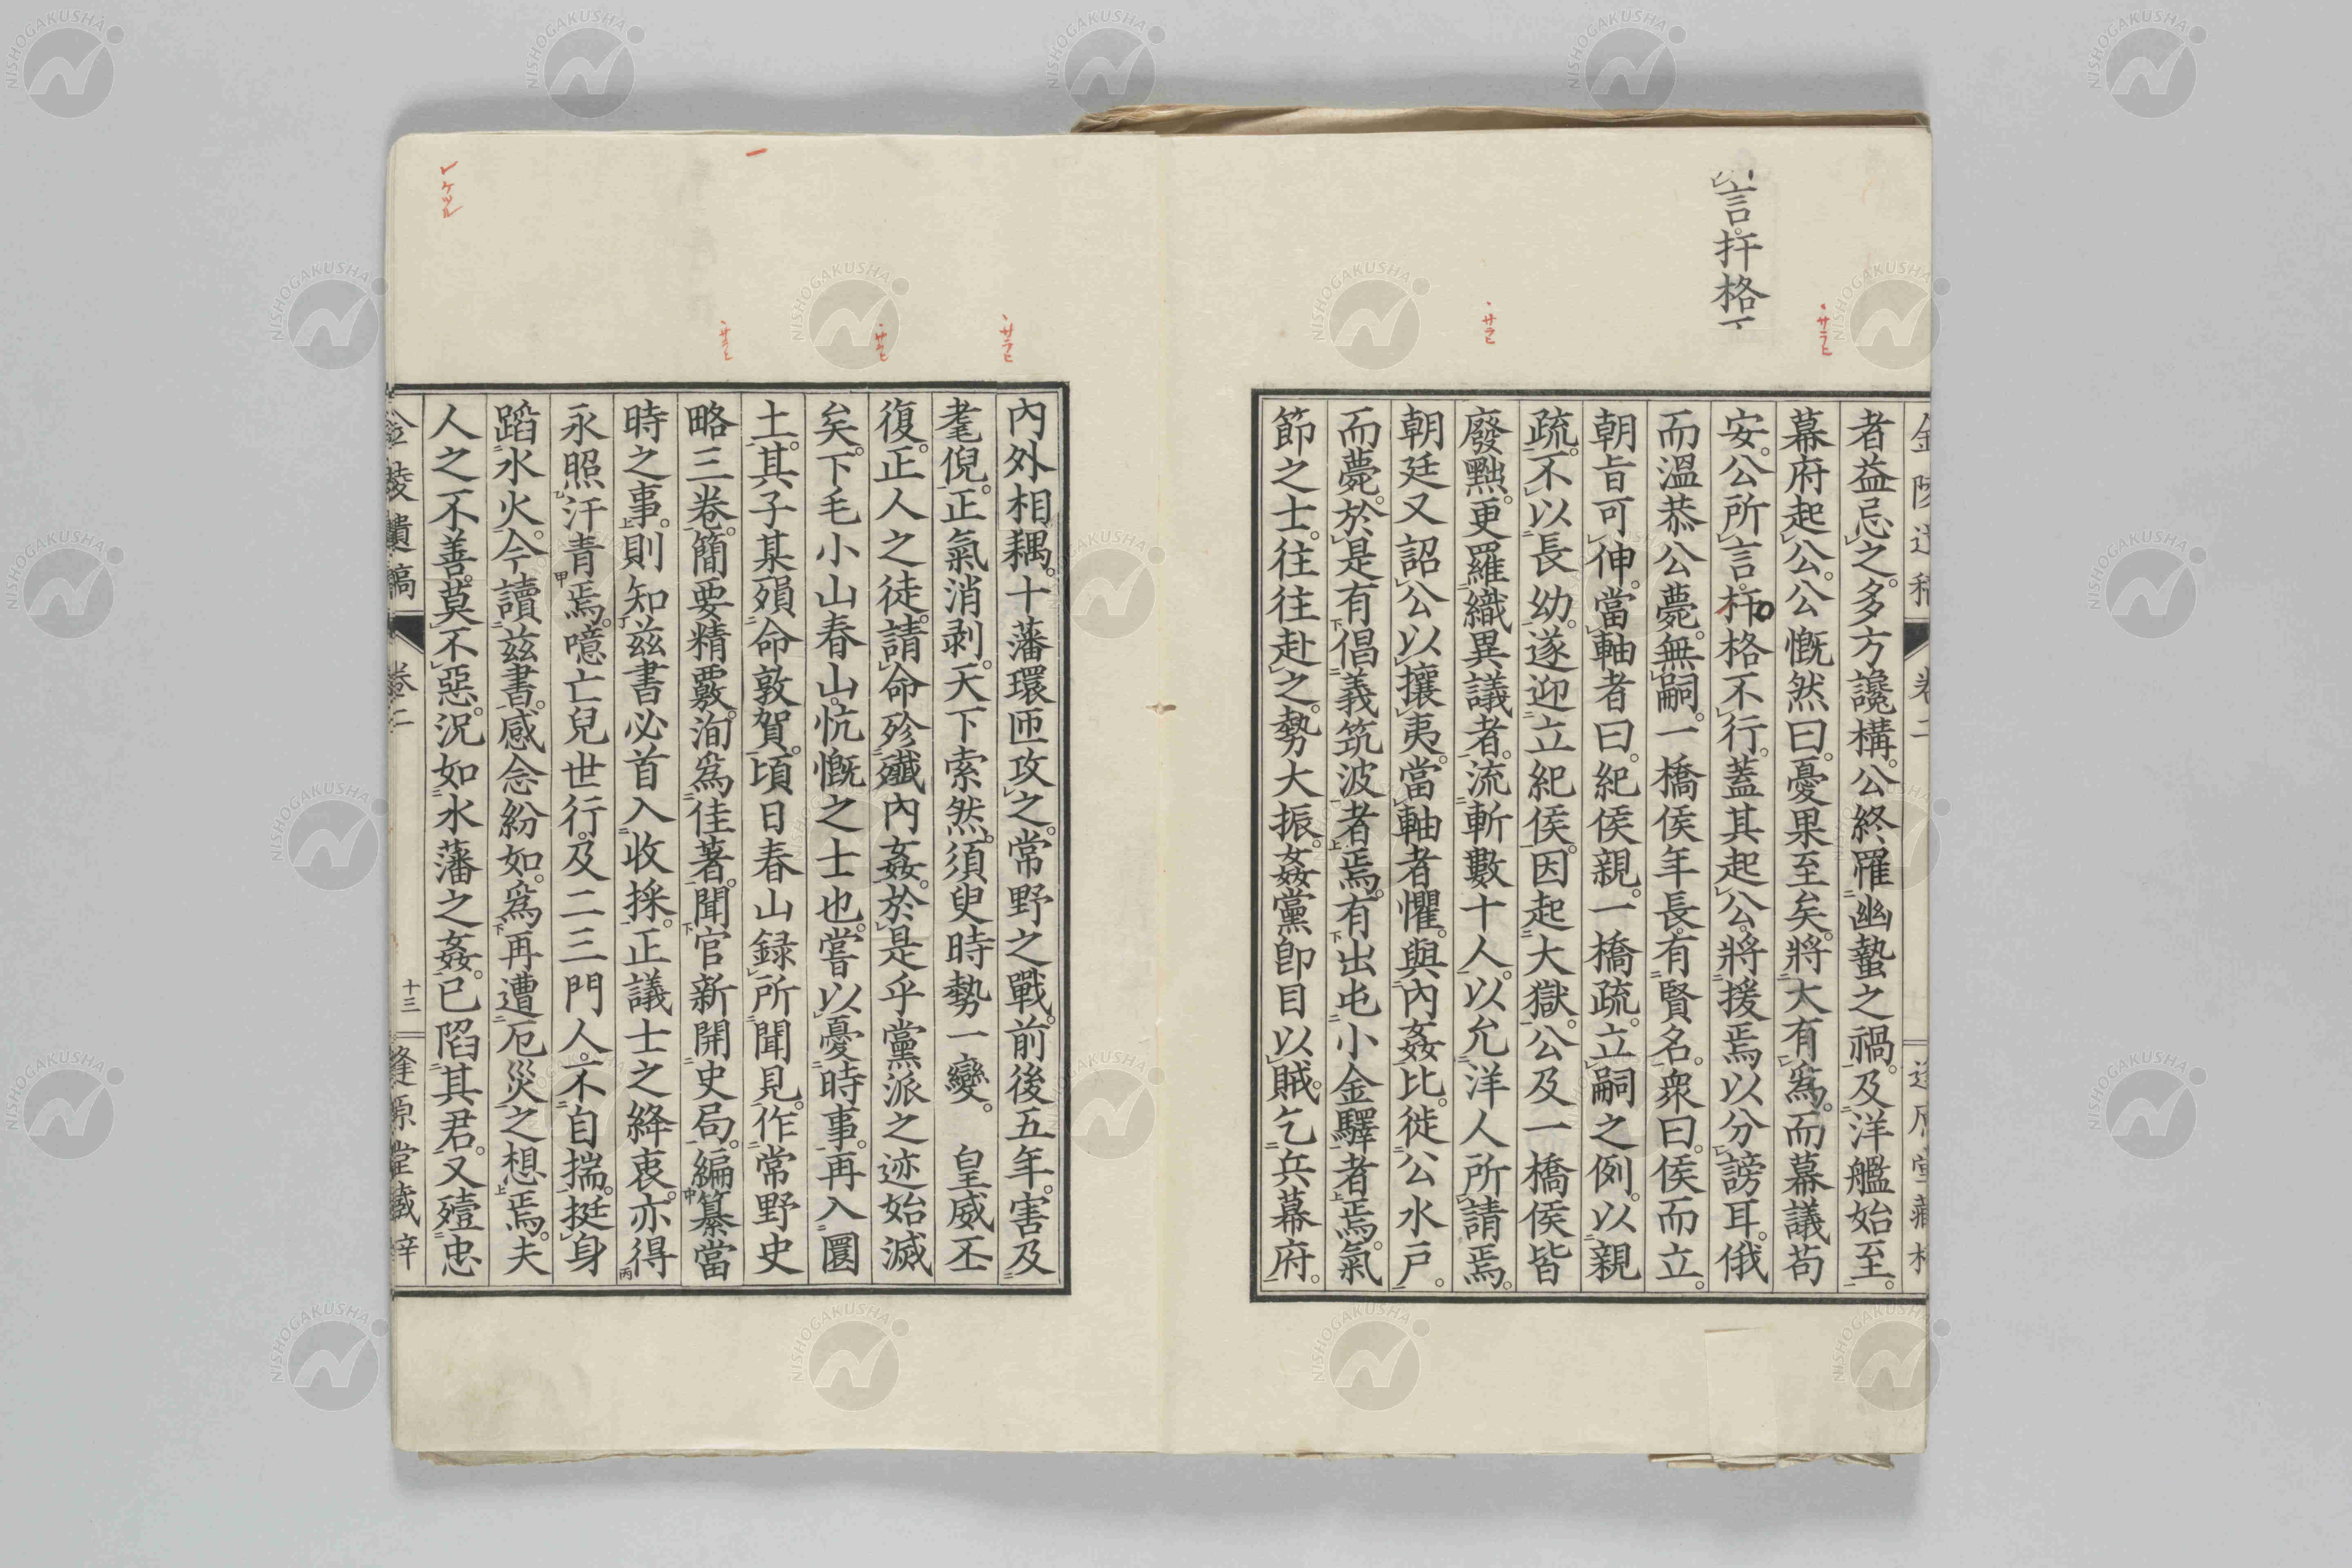 言。扞格
サラヒ
者益忌之。多方讒構。公終罹幽蟄之禍。及洋艦始至。
幕府起公。公慨然曰。憂果至矣。將大有爲。而幕議苟
安。公所言。扞格不行。蓋其起公。將援焉以分謗耳。俄
而溫恭公薨。無嗣。一橋侯年長。有賢名。衆曰。侯而立。
朝旨可伸。當軸者曰。紀侯親。一橋疏。立嗣之例。以親
疏。不以長幼。遂迎立紀侯。因起大獄。公及一橋侯皆
廢黜。更羅織異議者。流斬數十人。以允洋人所請焉。
朝廷又詔公以攘夷。當軸者懼。與內姦比。徙公水戶。
而薨。於是有倡義筑波者焉。有出屯小金驛者焉。氣
節之士。往往赴之。勢大振。姦黨卽目以賊。乞兵幕府。
サラヒ
內外相耦。十藩環匝攻之。常野之戰。前後五年。害及
耄倪。正氣消剥。天下索然。須臾時勢一變。 皇威丕
復。正人之徒。請命殄殲內姦。於是乎黨派之迹始滅
矣。下毛小山春山。忼慨之士也。嘗以憂時事。再入圜
土。其子某殞命敦賀。頃日春山録所聞見。作常野史
略三卷。簡要精覈。洵爲佳著。聞官新開史局。編纂當
時之事。則知茲書必首入收採。正議士之絳衷。亦得
永照汗青焉。噫亡兒世行。及二三門人。不自揣。挺身
蹈水火。今讀茲書。感念紛如。爲再遭厄災之想焉。夫
人之不善。莫不惡。況如水藩之姦。已陷其君。又殪忠
卷二
十三
サラヒ
サラヒ
サラヒ
NISHOGAKUSHA